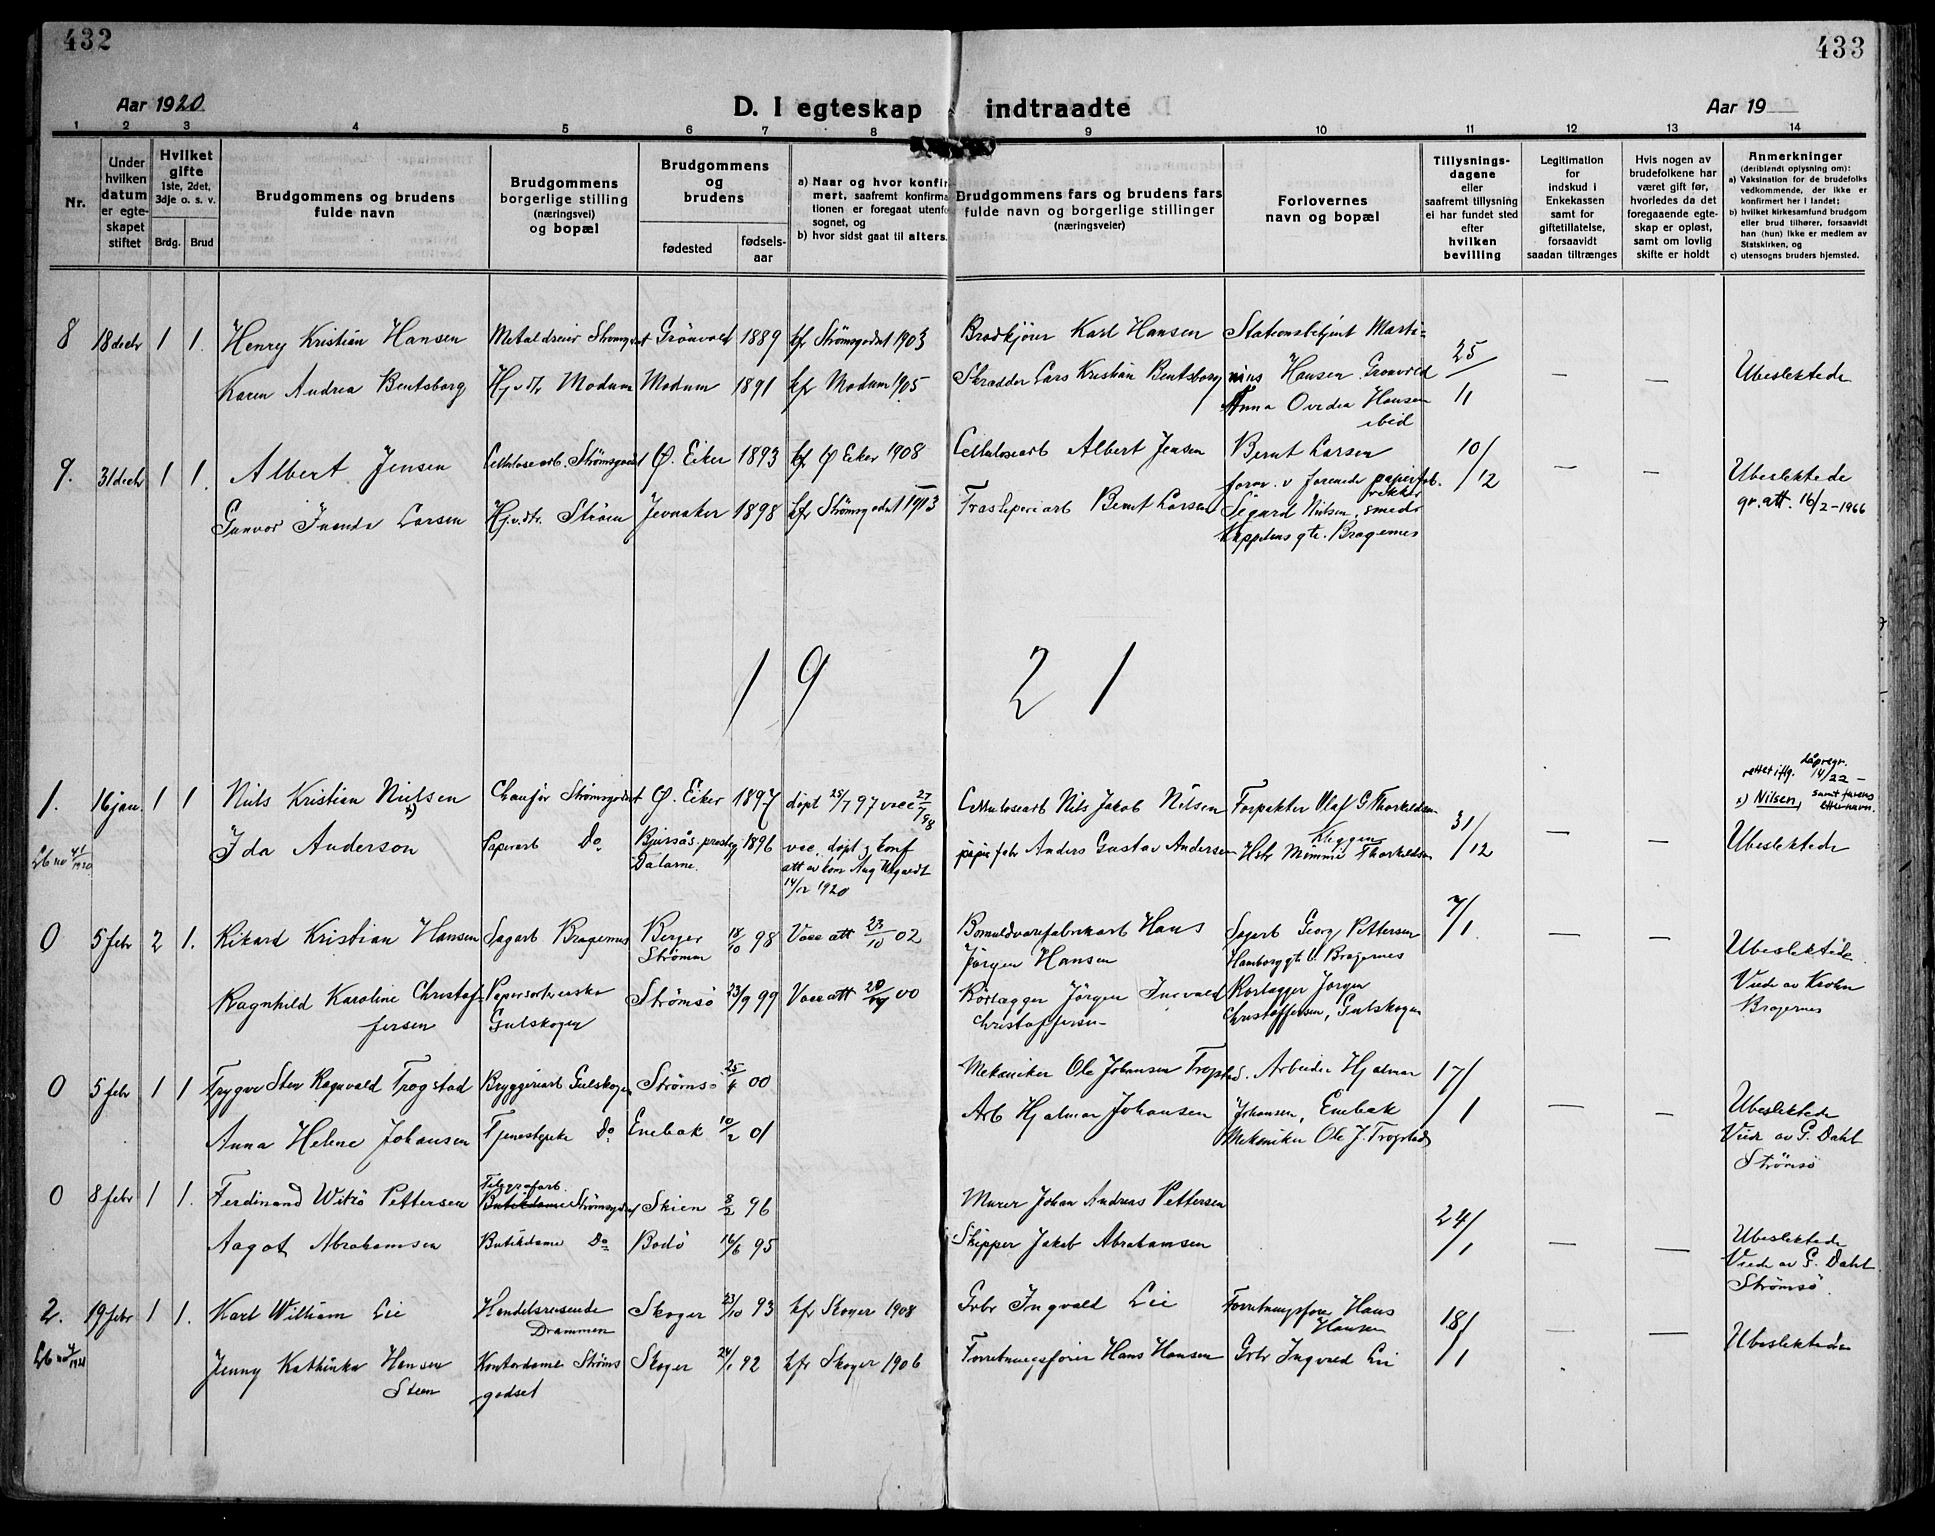 432
433
Aar 1920
D. I egteskap indtraadte
Aar 19
1 2 3 4 5 6 7 8 9 10 11 12 13 14
Nr.
Under hvilken datum er egteskapet stiftet
Hvilket gifte 1ste, 2det, 3dje o. s. v.
Brdg. Brud
Brudgommens og brudens fulde navn
Brudgommens borgerlige stilling (næringsvei) og bopæl
Brudgommens og brudens
fødested
fødselsaar
a) Naar og hvor konfirmert, saafremt konfirmationen er foregaat utenfor sognet, og
b) hvor sidst gaat til alters.
Brudgommens fars og brudens fars fulde navn og borgerlige stillinger (næringsveier)
Forlovernes navn og bopæl
Tillysningsdagene eller saafremt tillysning ei har fundet sted efter hvilken bevilling
Legitimation for indskud i Enkekassen samt for giftetillatelse, forsaavidt saadan tiltrænges
Hvis nogen av brudefolkene har været gift før, hvorledes da det foregaaende egteskap er opløst, samt om lovlig skifte er holdt
Anmerkninger (deriblandt oplysning om):
a) Vaksination for de brudefolks vedkommende, der ikke er konfirmert her i landet;
b) hvilket kirkesamfund brudgom eller brud tilhører, forsaavidt han (hun) ikke er medlem av Statskirken, og
c) utensogns bruders hjemsted.
8 18 decbr 1 1. Henry Kristian Hansen Metaldreier Strømsgodset Grönvold 1889 kfr Strømsgodset 1903 Brødkjører Karl Hansen Stationsbetjent Marti-
Karen Andrea Bentsborg Hj.v.dtr Modum Modum 1891 kfr Modum 1905 Skrædder Lars Kristian Bentsborg nius Hansen Gronvold 25/11 — — Ubeslektede
Anna Ovedia Hansen
ibid
9. 31 decbr 1 1. Albert Jensen Cellulosearb. Strømsgodset Ø. Eiker 1893 kfr Ø Eiker 1908 Cellulosearb Albert Jensen Bernt Larsen 10/12 — — Ubeslektede
form. v forenede papirfab.
rekker
Gunvor Larsen Hj.v.dtr. Strøm Jevnaker 1898 kfr Strømsgodset 1913 Træsliperiarb Bernt Larsen Sigurd Nilsen, smed gr. att. 16/2-1966
Kappelens gte. Bragernes
1921
1. 16 jan. 1 1 Nils Kristian Nielsen x) Chauför Strømsgodset Ø. Eiker 1897 döpt 25/7 97 vacc 27/7 98 Cellulosearb Nils Jakob Nilsen Forpakter Olaf G. Thorkildsen 31/12 — — rettet iflg. dåpsregr. 14/22 —
x) Nilsen, samt farens etternavn.
Kleggen
Lb no 41/1920 Ida Anderson Papirarb Do Bjursås prestegj. Dalarne. 1896 vac. döpt & konf Anders Gustav Andersen Hstr Mimmi Thorkildsen Ubeslektede
14/12 1920
0 5 febr 2 1. Rikard Kristian Hansen Sagarb Bragernes Berger Strømm 18/10 98 Vacc att 23/10 02 Bomuldvarefabrikarb Hans Jörgen Hansen Sagarb Georg Pettersen 7/1. — — Ubeslektede.
Hamborggt 6. Bragernes
Ragnhild Karoline Christoffersen Papersorterske Gulskogen Strømsö 23/9 99 Vacc att 00 Rörlægger Jörgen Ingvald Christoffersen Rörlægger Jørgen Christoffersen, Gulskogen Viede av Krohn Bragernes
0 5 febr 1 1 Trygve Sten Ragnvald Trogstad Bryggeriarb Gulskogen Strømsö 25/4 00 Mekaniker Ole Johansen Trogstad. Arbeider Hjalmar 17/1 — — Ubeslektede
Anna Helene Johansen Tjenestepike Do Enebak 10/2 01 Arb Hjalmar Johansen Johansen, Enebak Viede av G. Dahl
Mekaniker Ole J. Trogstad Strømsö
0 8 febr 1 1. Ferdinand Pettersen Telegrafarb. Butikdame Strømsgodset Skien 8/2 96 Murer Johan Andreas Pettersen
Aagot Abrahamsen Butikdame Do Bodö 16/6 95 Skipper Jakob Abrahamsen 24/1 — — Ubeslektede
Viede av G. Dahl
Strømsö.
2. 19 febr 1 1. Karl William Lie Handelsreisende Drammen Skoger 23/10 93 kfr Skoger 1908 Grbr Ingvald Lie Forretningsförer Hans Hansen 18/1 — — Ubeslektede
Jenny Kathinka Hansen Steen Kontordame Strømsgodset Skoger 24/1 92 kfr Skoger 1906 Forretningsförer Hans Hansen Grbr Ingvald Lie